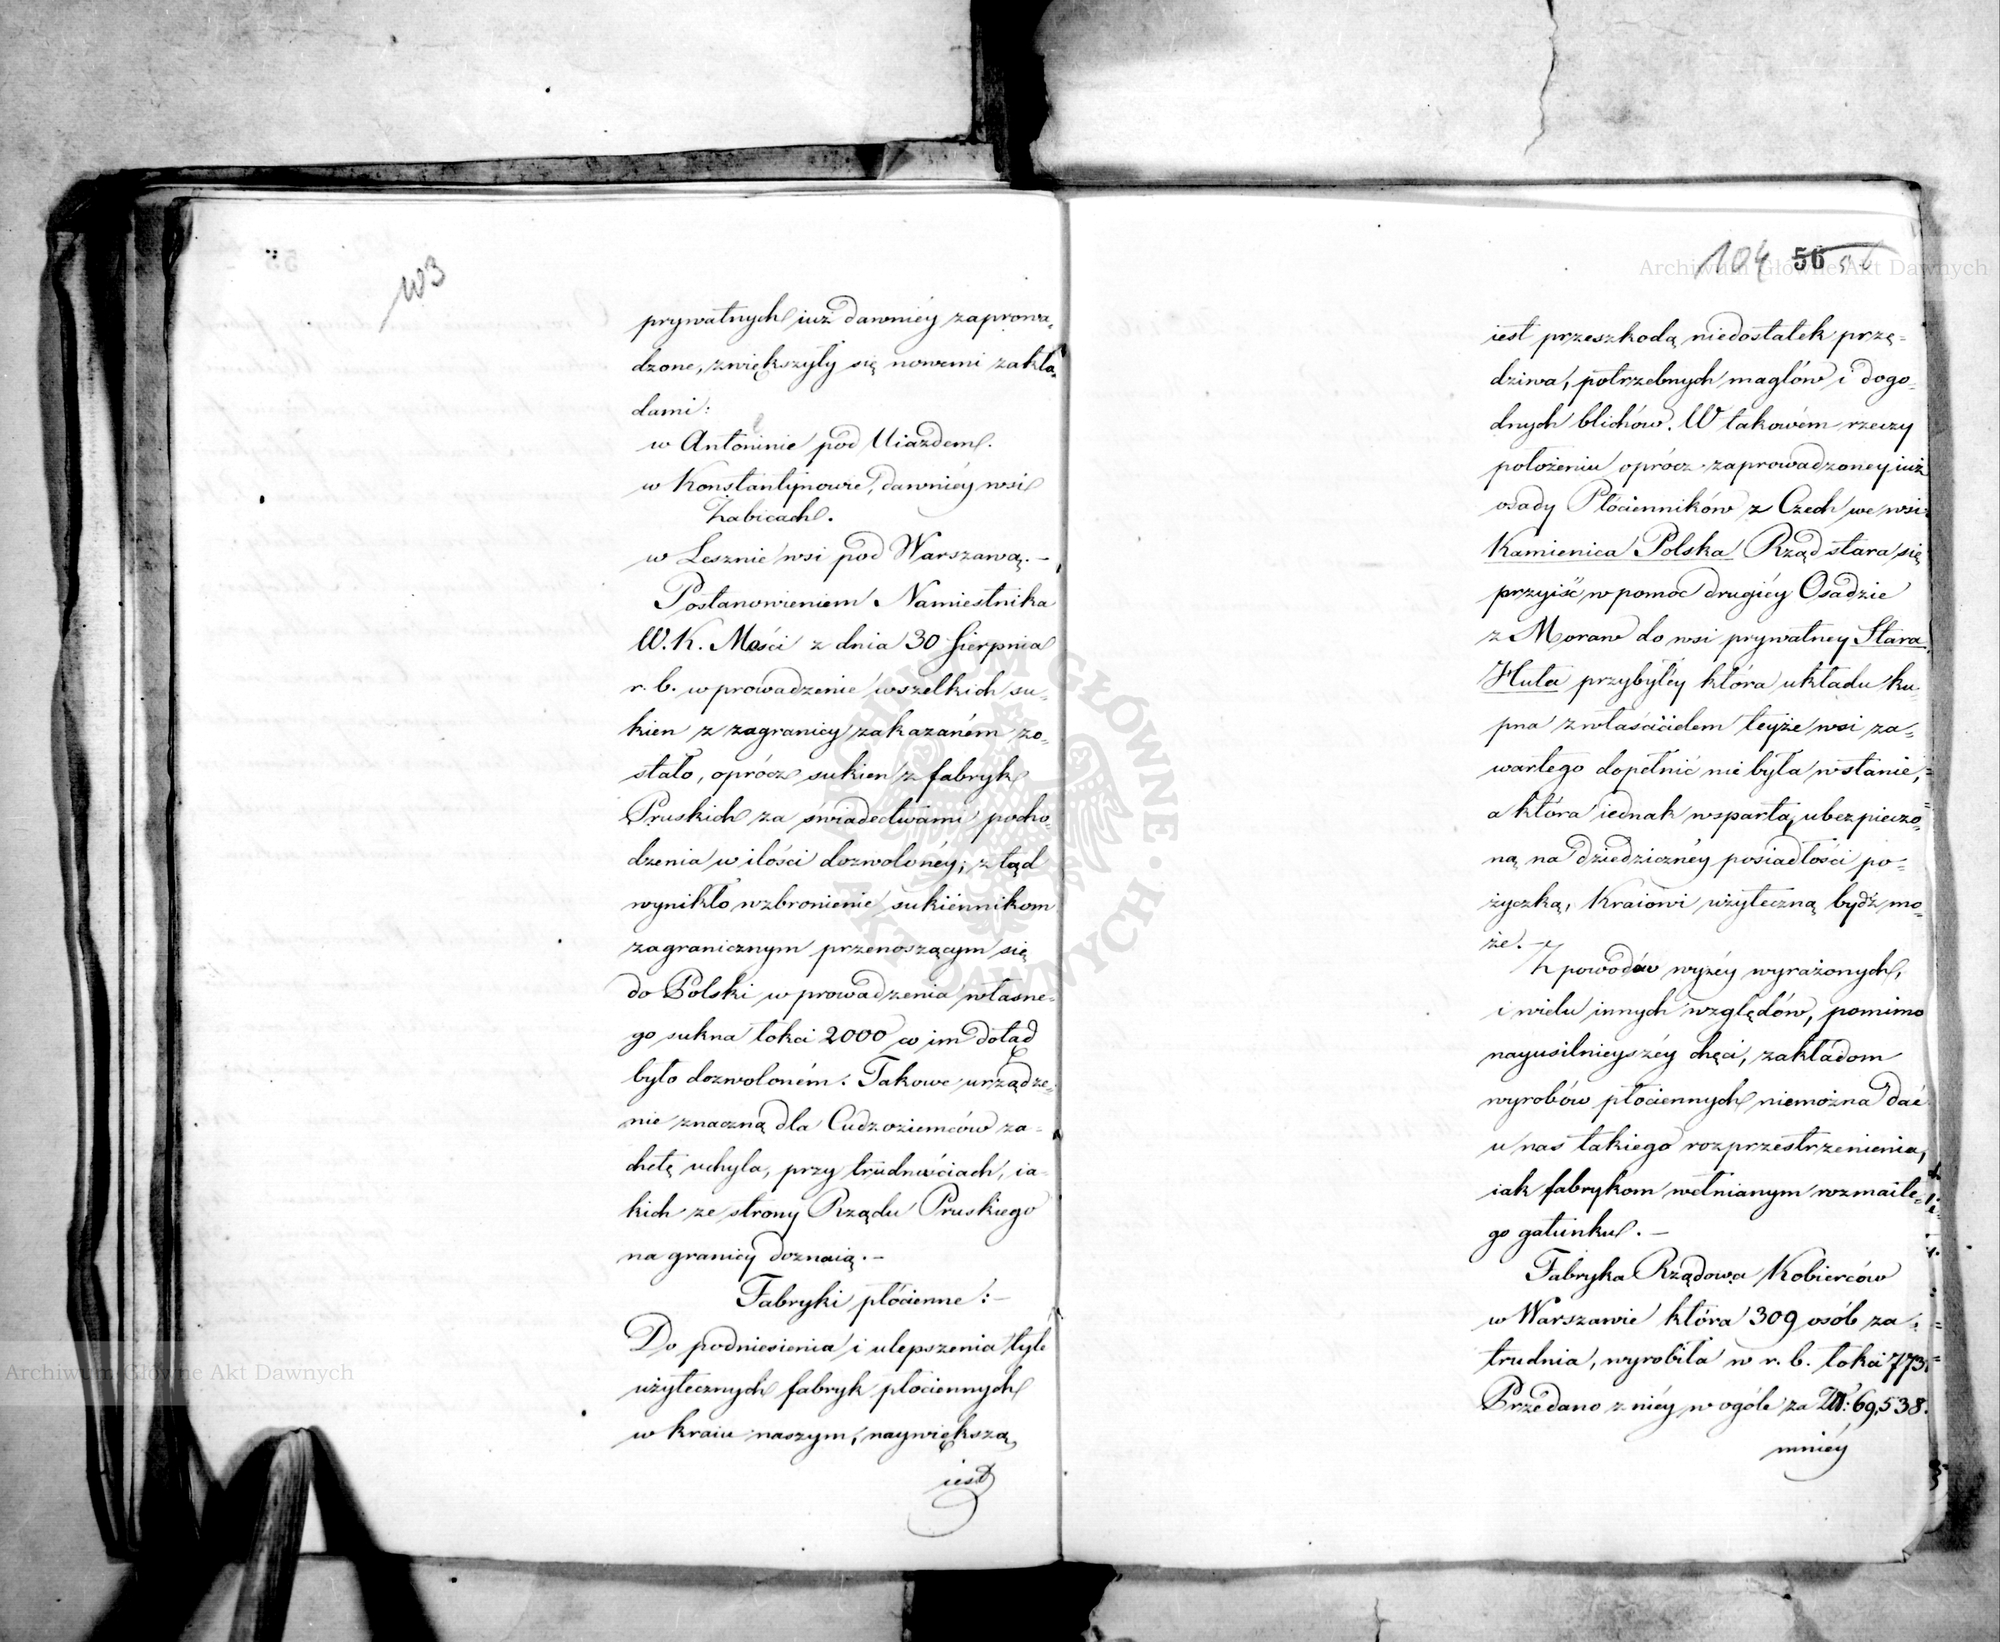 103
prywatnych iuż dawniéy zaprowa-
dzone, zwiększyły się nowemi zakła-
dami:
w Antoninie pod Uiazdem.
w Konstantynowie, dawniéy wsi
Żabicach.
w Lesznie wsi pod Warszawą. -
Postanowieniem Namiestnika
W. K. Mości z dnia 30 Sierpnia
r. b. wprowadzenie wszelkich su-
kien z zagranicy zakazaném zo-
stało, oprócz sukien z fabryk
Pruskich za świadectwami pocho-
dzenia w ilości dozwolonéy; ztąd
wynikło wzbronienie sukiennikom
zagranicznym przenoszącym się
do Polski wprowadzenia własne-
go sukna łokci 2000 co im dotąd
było dozwoloném. Takowe urządze-
nie znaczną dla Cudzoziemców za-
chętę uchyla, przy trudnościach, ia-
kich ze strony Rządu Pruskiego
na granicy doznaią. -
Fabryki płócienne: -
Do podniesienia i ulepszenia tyle
użytecznych fabryk płóciennych
w kraiu naszym, naywiększą
iest
104 56
iest przeszkodą niedostatek przę-
dziwa, potrzebnych maglów i dogo-
dnych blichów. W takowém rzeczy
położeniu oprócz zaprowadzoney iuż
osady Płócienników z Czech we wsi
Kamienica Polska Rząd stara się
przyiść w pomoc drugiéy Osadzie
z Moraw do wsi prywatney Stara
Huta przybyłéy która układu ku-
pna z właścicielem teyże wsi za-
wartego dopełnić nie była wstanie,
a która iednak wsparta, ubezpieczo-
ną na dziedzicznéy posiadłości po-
życzką, Kraiowi użyteczną bydź mo-
że. -
Z powodów wyżéy wyrażonych,
i wielu innych względów, pomimo
nayusilnieyszéy chęci, zakładom
wyrobów płóciennych niemożna dać
u nas takiego rozprzestrzenienia,
iak fabrykom wełnianym rozmaite-
go gatunku. -
Fabryka Rządowa Kobierców
w Warszawie która 309 osób za-
trudnia, wyrobiła w r. b. łokci 773.
Przedano z niéy w ogóle za Zł: 69,538.
mniéy
Archiwum Główne Akt Dawnych
Archiwum Główne Akt Dawnych
ARCHIWUM GŁÓWNE AKT DAWNYCH